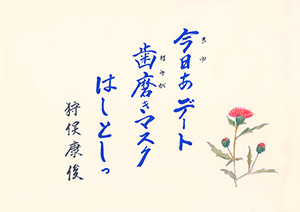 今日あデート
きゆ
歯磨きマスク
はみが
はしとしっ
狩俣康俊